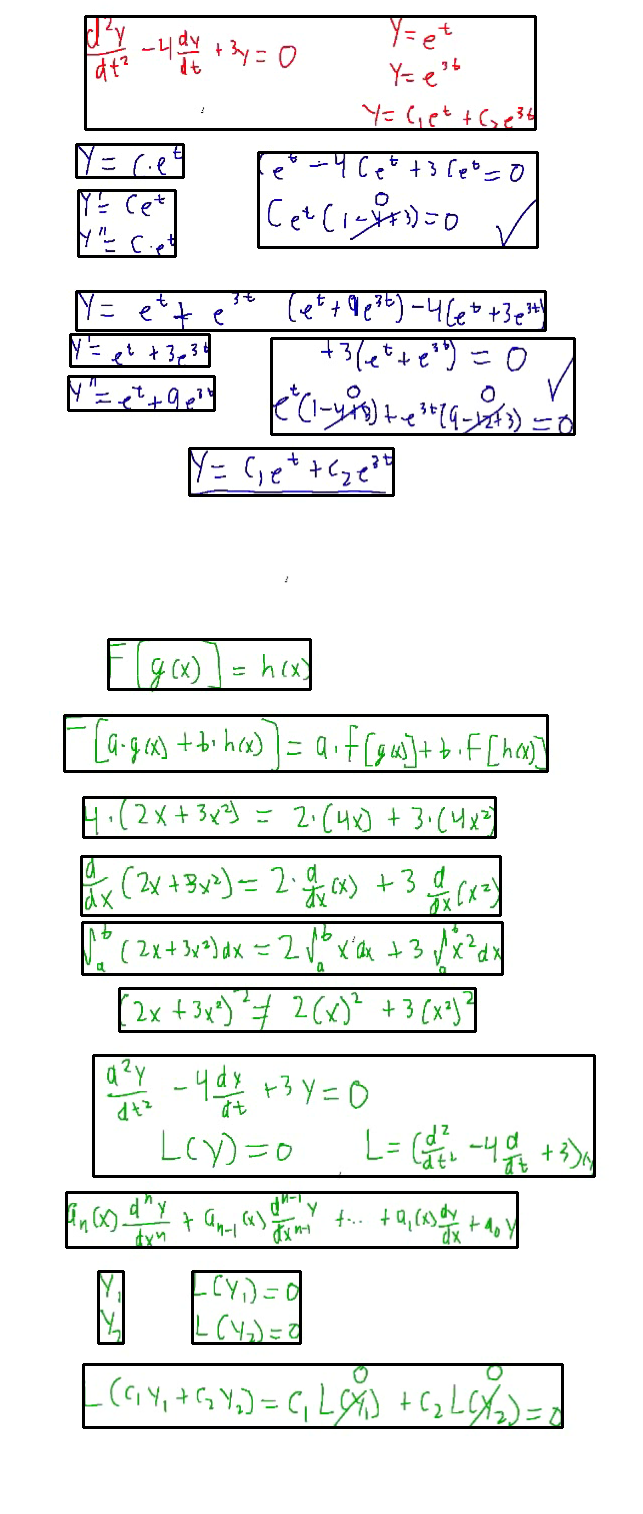 d²y/dt² - 4 dy/dt + 3y = 0
Y = e^t
Y = e^{3t}
Y = C₁e^t + C₂e^{3t}
Y = C·e^t
Y' = Ce^t
Y'' = C·e^t
Ce^t - 4Ce^t + 3Ce^t = 0
Ce^t(1-4+3) = 0 ✓
0
Y = e^t + e^{3t}
(e^t + 9e^{3t}) - 4(e^t + 3e^{3t})
Y' = e^t + 3e^{3t}
Y'' = e^t + 9e^{3t}
+3(e^t + e^{3t}) = 0 ✓
0 0
e^t(1-4+3) + e^{3t}(9-12+3) = 0
Y = C₁e^t + C₂e^{3t}
F[g(x)] = h(x)
F[a·g(x) + b·h(x)] = a·F[g(x)] + b·F[h(x)]
4·(2x + 3x²) = 2·(4x) + 3·(4x²)
d/dx (2x + 3x²) = 2·d/dx(x) + 3 d/dx(x²)
∫_a^b (2x + 3x²)dx = 2∫_a^b x dx + 3∫_a^b x² dx
(2x + 3x²)² ≠ 2(x)² + 3(x²)²
d²y/dt² - 4 dy/dt + 3y = 0
L(y) = 0 L = (d²/dt² - 4 d/dt + 3)
a_n(x) d^n y/dx^n + a_{n-1}(x) d^{n-1}y/dx^{n-1} + ... + a₁(x) dy/dx + a₀ y
Y₁
Y₂
L(Y₁) = 0
L(Y₂) = 0
0 0
L(C₁Y₁ + C₂Y₂) = C₁L(Y₁) + C₂L(Y₂) = 0